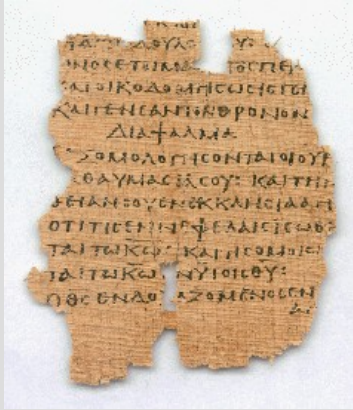 ΔΟΥΛΩ
ΩΝΟCΕΤΟΙΜΑ ΤΟCΠΕΡ
ΚΑΙΟΙΚΟΔΟΜΗCΩCΕΙCΓΕ
ΚΑΙΓΕΝΕΑΝΤΟΝΘΡΟΝΟΝ
ΔΙΑΨΑΛΜΑ
ΞΟΜΟΛΟΓΗCΟΝΤΑΙΟΙΟΥΡ
ΘΑΥΜΑCΙΑCΟΥ: ΚΑΙΤΗΝ
ΘΕΙΑΝCΟΥΕΝΕΚΚΛΗCΙΑΑΓΙ
ΟΤΙΤΙCΕΝΝΕΦΕΛΑΙCΙCΩΘ
ΤΑΙΤΩΚΩ: ΚΑΙΤΙCΟΜΟΙΩ
ΤΑΙΤΩΚΩ ΝΥΙΟΙCΘΥ:
ΟΘCΕΝΔΟ ΑΖΟΜΕΝΟCΕΝ